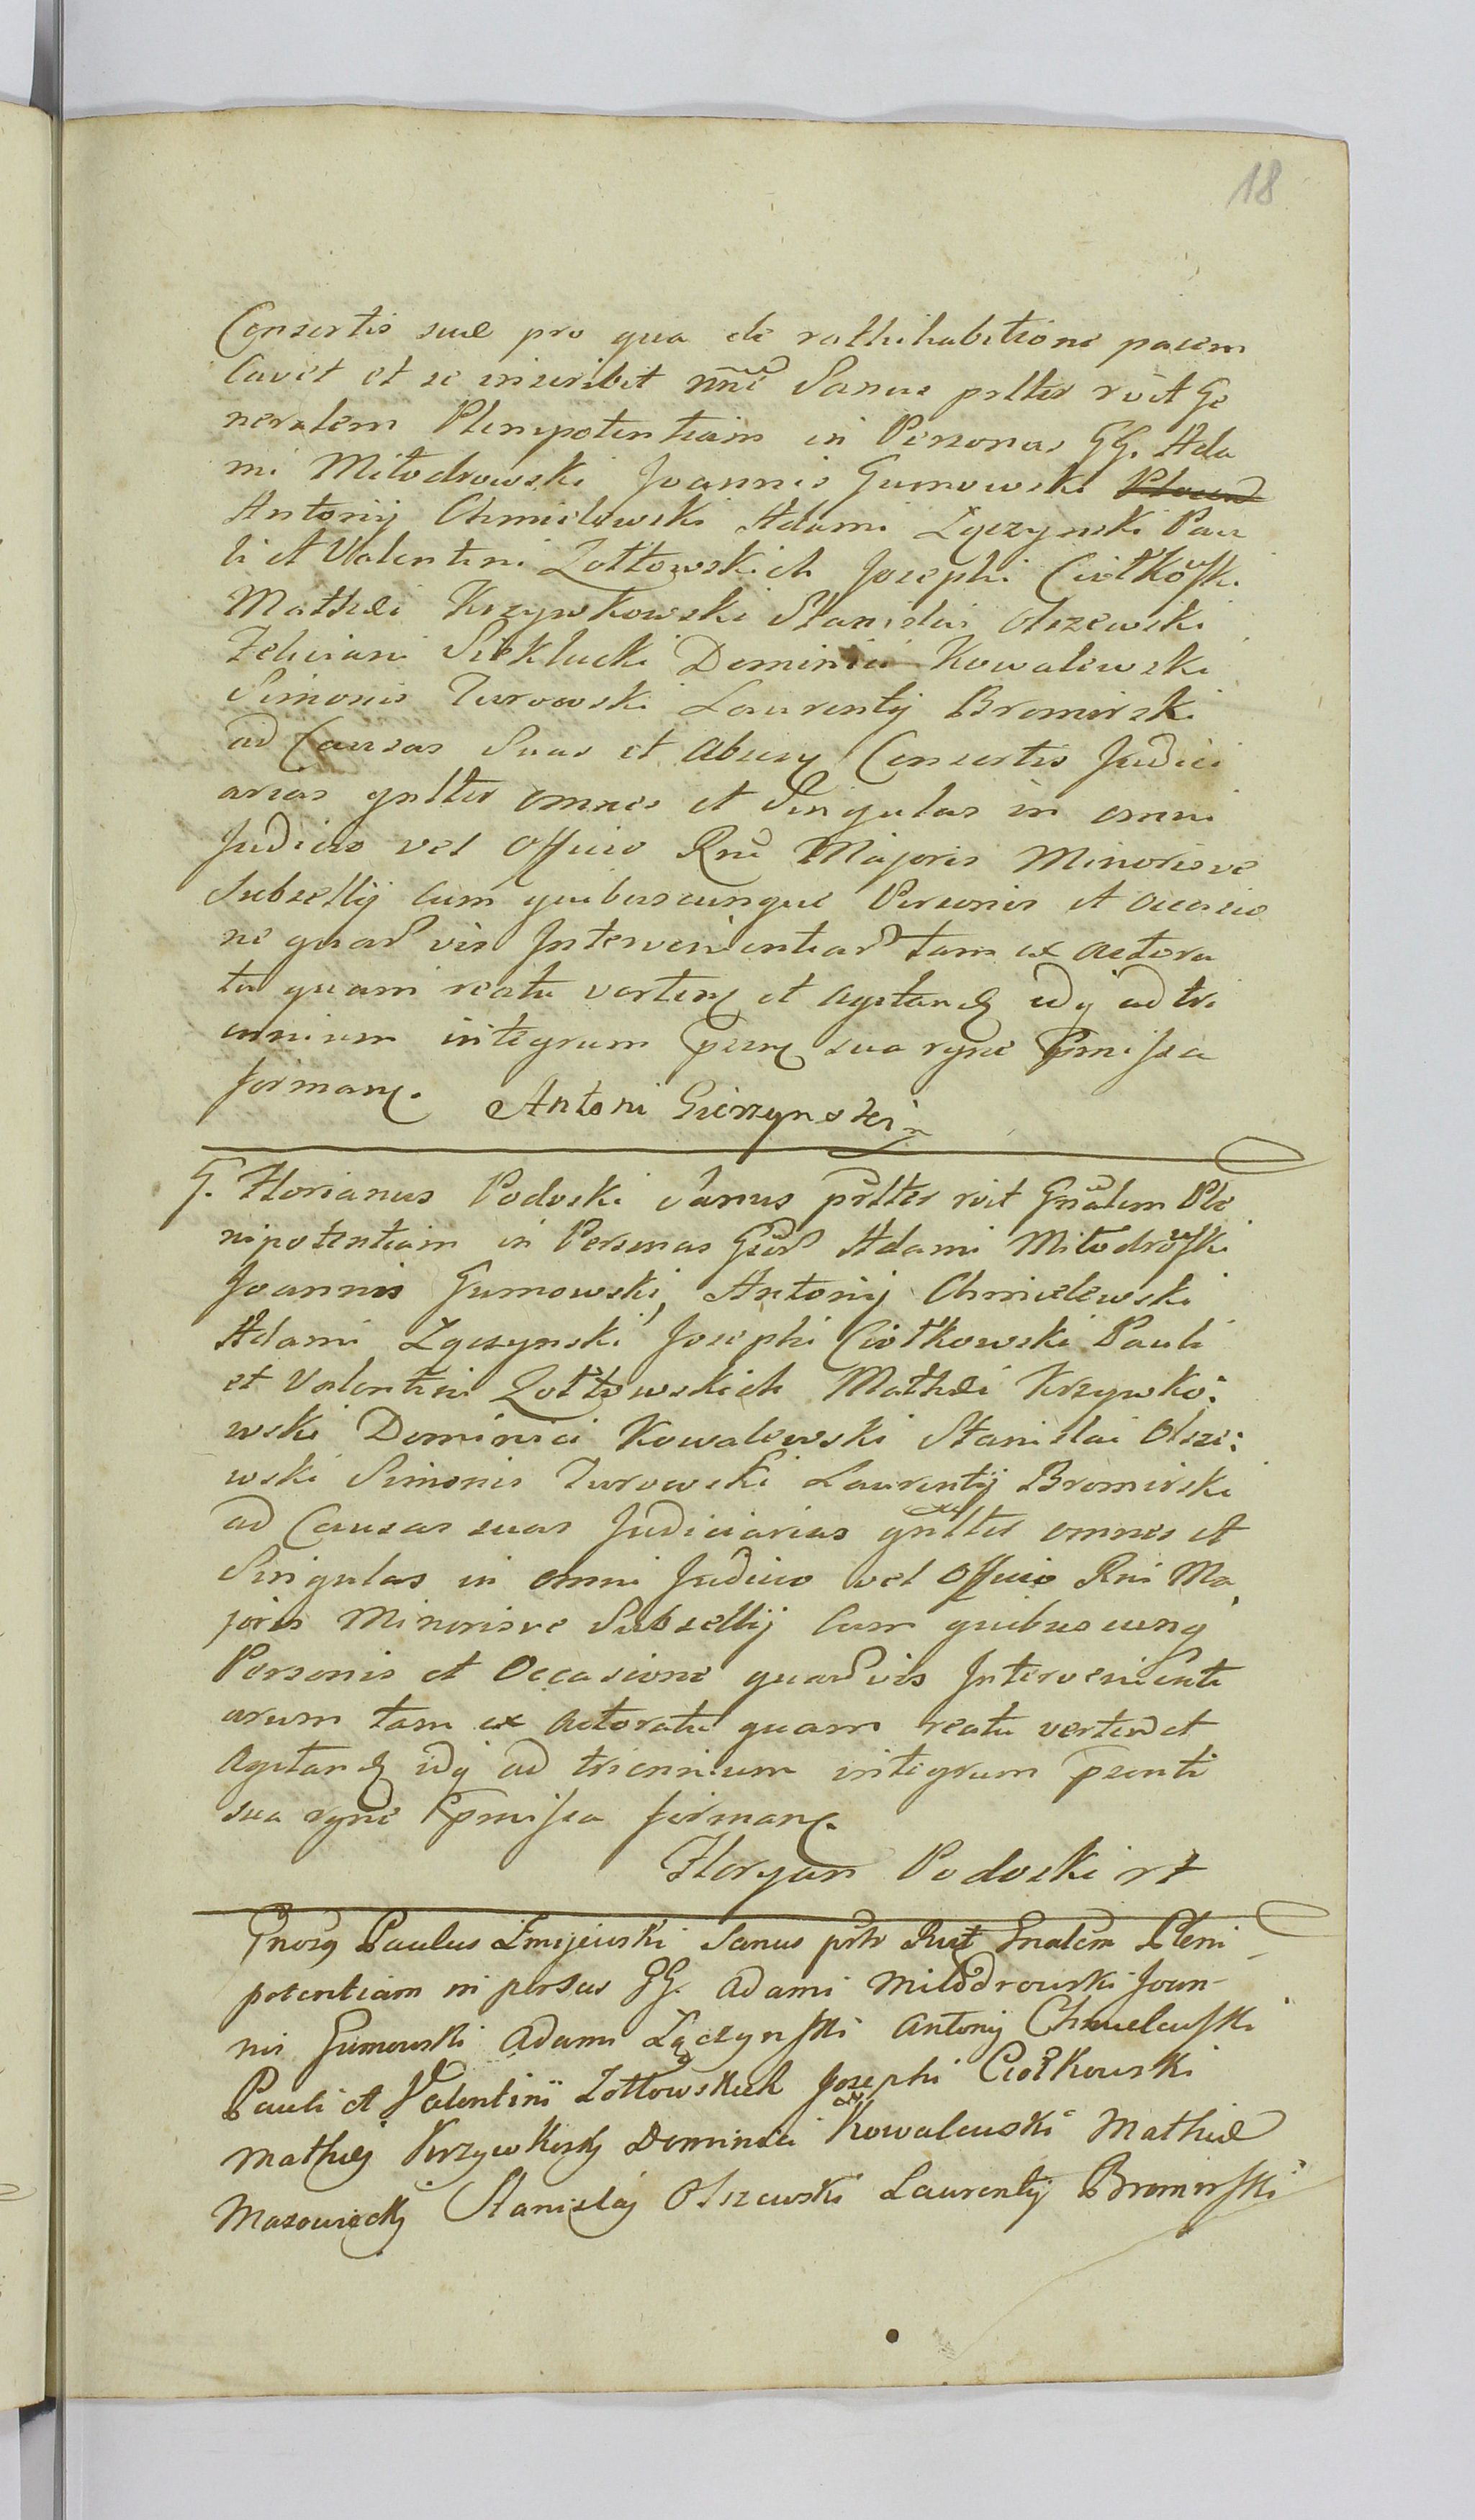 18
Consortis suæ pro qua de rathihabitione pacem
Cavet et se inscribit nne Sanus psltes rōt Ge
neralem Plenipotentiam in Personas GG. Ada
mi Miłodrowski Joannis Gumowski
Antonij Chmielewski Adami Łączynski Pau
li et Valentini Zołtowskich Josephi Ciołkowski
Mathæi Krzywkowski Stanislai Olszewski
Feliciani Siekłucki Dominici Kowalewski
Simonis Turowski Laurentij Bromirski
ad Causas Suas et Consortis Judici
arias gnltes omnes et Singulas in omni
Judicio vel Officio Rni Majoris Minorisve
Subsellij cum quibuscunque Personis et occasio
ne quarvis Intervenientiar tam ex actora
tu quam reatu verten et agitand idq ad tri
ennium integrum sua rgne pmissa
forman.
Antoni Gierzynski
G. Florianus Podoski Sanus psltes rōt Gnalem Ple
nipotentiam in Personas Adami Miłodrowski
Joannis Gumowski, Antonij Chmielewski
Adami Łączynski Josephi Ciołkowski Pauli
et Valentini Zołtowskich Mathæi Krzywko:
wski Dominici Kowalewski Stanislai Olsze:
wski Simonis Turowski Laurentij Bromirski
ad Causas suas Judiciarias gnltes omnes et
Singulas in omni Judicio vel Officio Rni Ma
joris Minorisve Subsellij cum quibuscunq
Personis et Occasione quarvis Intervenienti
arum tam ex actoratu quam reatu verten et
agitand idq ad triennium integrum psenti
sua rgne pmissa forman.
Floryan Podoski
Paulus Zmijewski Sanus Gnalem Pleni
potentiam in persas GG. Adami Miłodrowski Joan-
nis Gumowski Adami Łączynski Antonij Chmielewski
Pauli et Valentini Zołtowskich Josephi Ciołkowski
Mathej Krzywkosky Dominici Kowalewski Mathiæ
Mazowiecky Stanislaj Olszewski Laurentij Bromirski